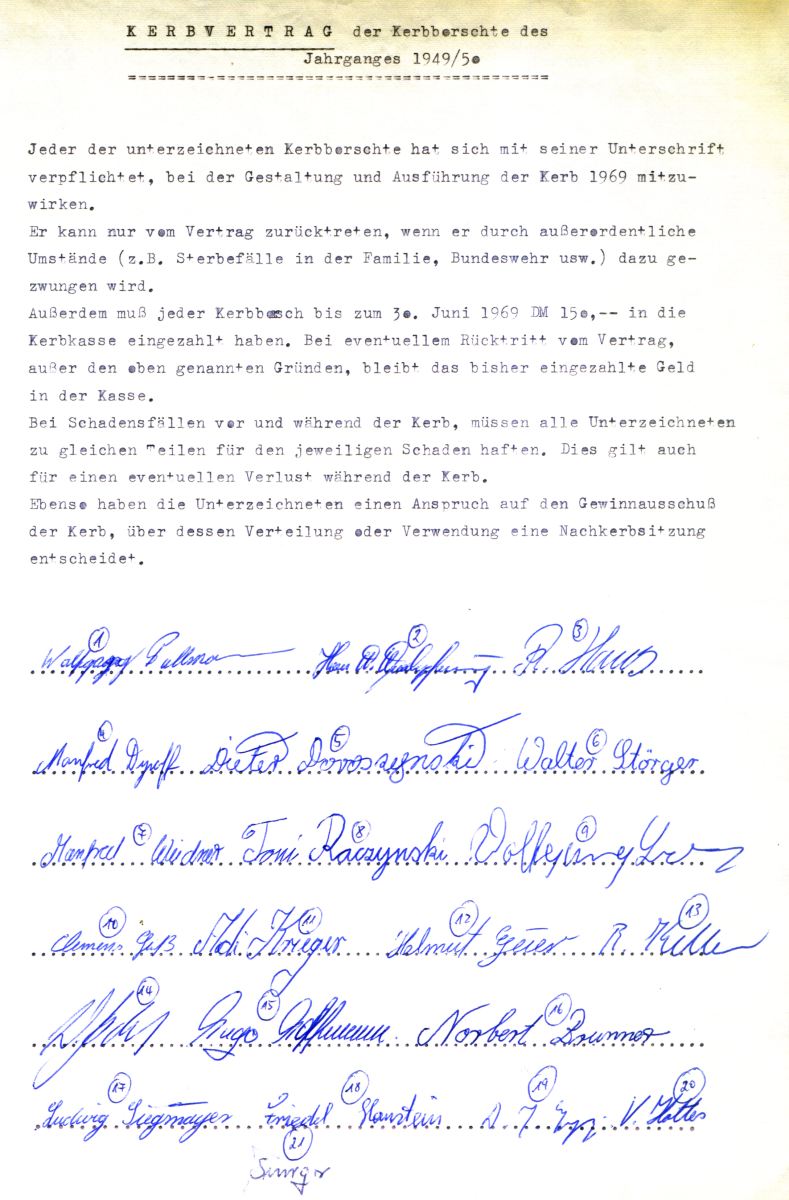 KERBVERTRAG der Kerbborschte des
Jahrganges 1949/50
Jeder der unterzeichneten Kerbborschte hat sich mit seiner Unterschrift
verpflichtet, bei der Gestaltung und Ausführung der Kerb 1969 mitzu-
wirken.
Er kann nur vom Vertrag zurücktreten, wenn er durch außerordentliche
Umstände (z.B. Sterbefälle in der Familie, Bundeswehr usw.) dazu ge-
zwungen wird.
Außerdem muß jeder Kerbbosch bis zum 30. Juni 1969 DM 150,-- in die
Kerbkasse eingezahlt haben. Bei eventuellem Rücktritt vom Vertrag,
außer den oben genannten Gründen, bleibt das bisher eingezahlte Geld
in der Kasse.
Bei Schadensfällen vor und während der Kerb, müssen alle Unterzeichneten
zu gleichen Teilen für den jeweiligen Schaden haften. Dies gilt auch
für einen eventuellen Verlust während der Kerb.
Ebenso haben die Unterzeichneten einen Anspruch auf den Gewinnausschuß
der Kerb, über dessen Verteilung oder Verwendung eine Nachkerbsitzung
entscheidet.
1 2 3
Wolfgang R. Haus
4 5 6
Manfred Dieter Walter Störger
7 8 9
Manfred Weidner Toni Raczynski Wolfgang
10 11 12 13
Clemens Adi Krieger Helmut Geier R.
14 15 16
Hugo Hoffmann Norbert Brunner
17 18 19 20
Ludwig Siegmayer Friedel V.
21